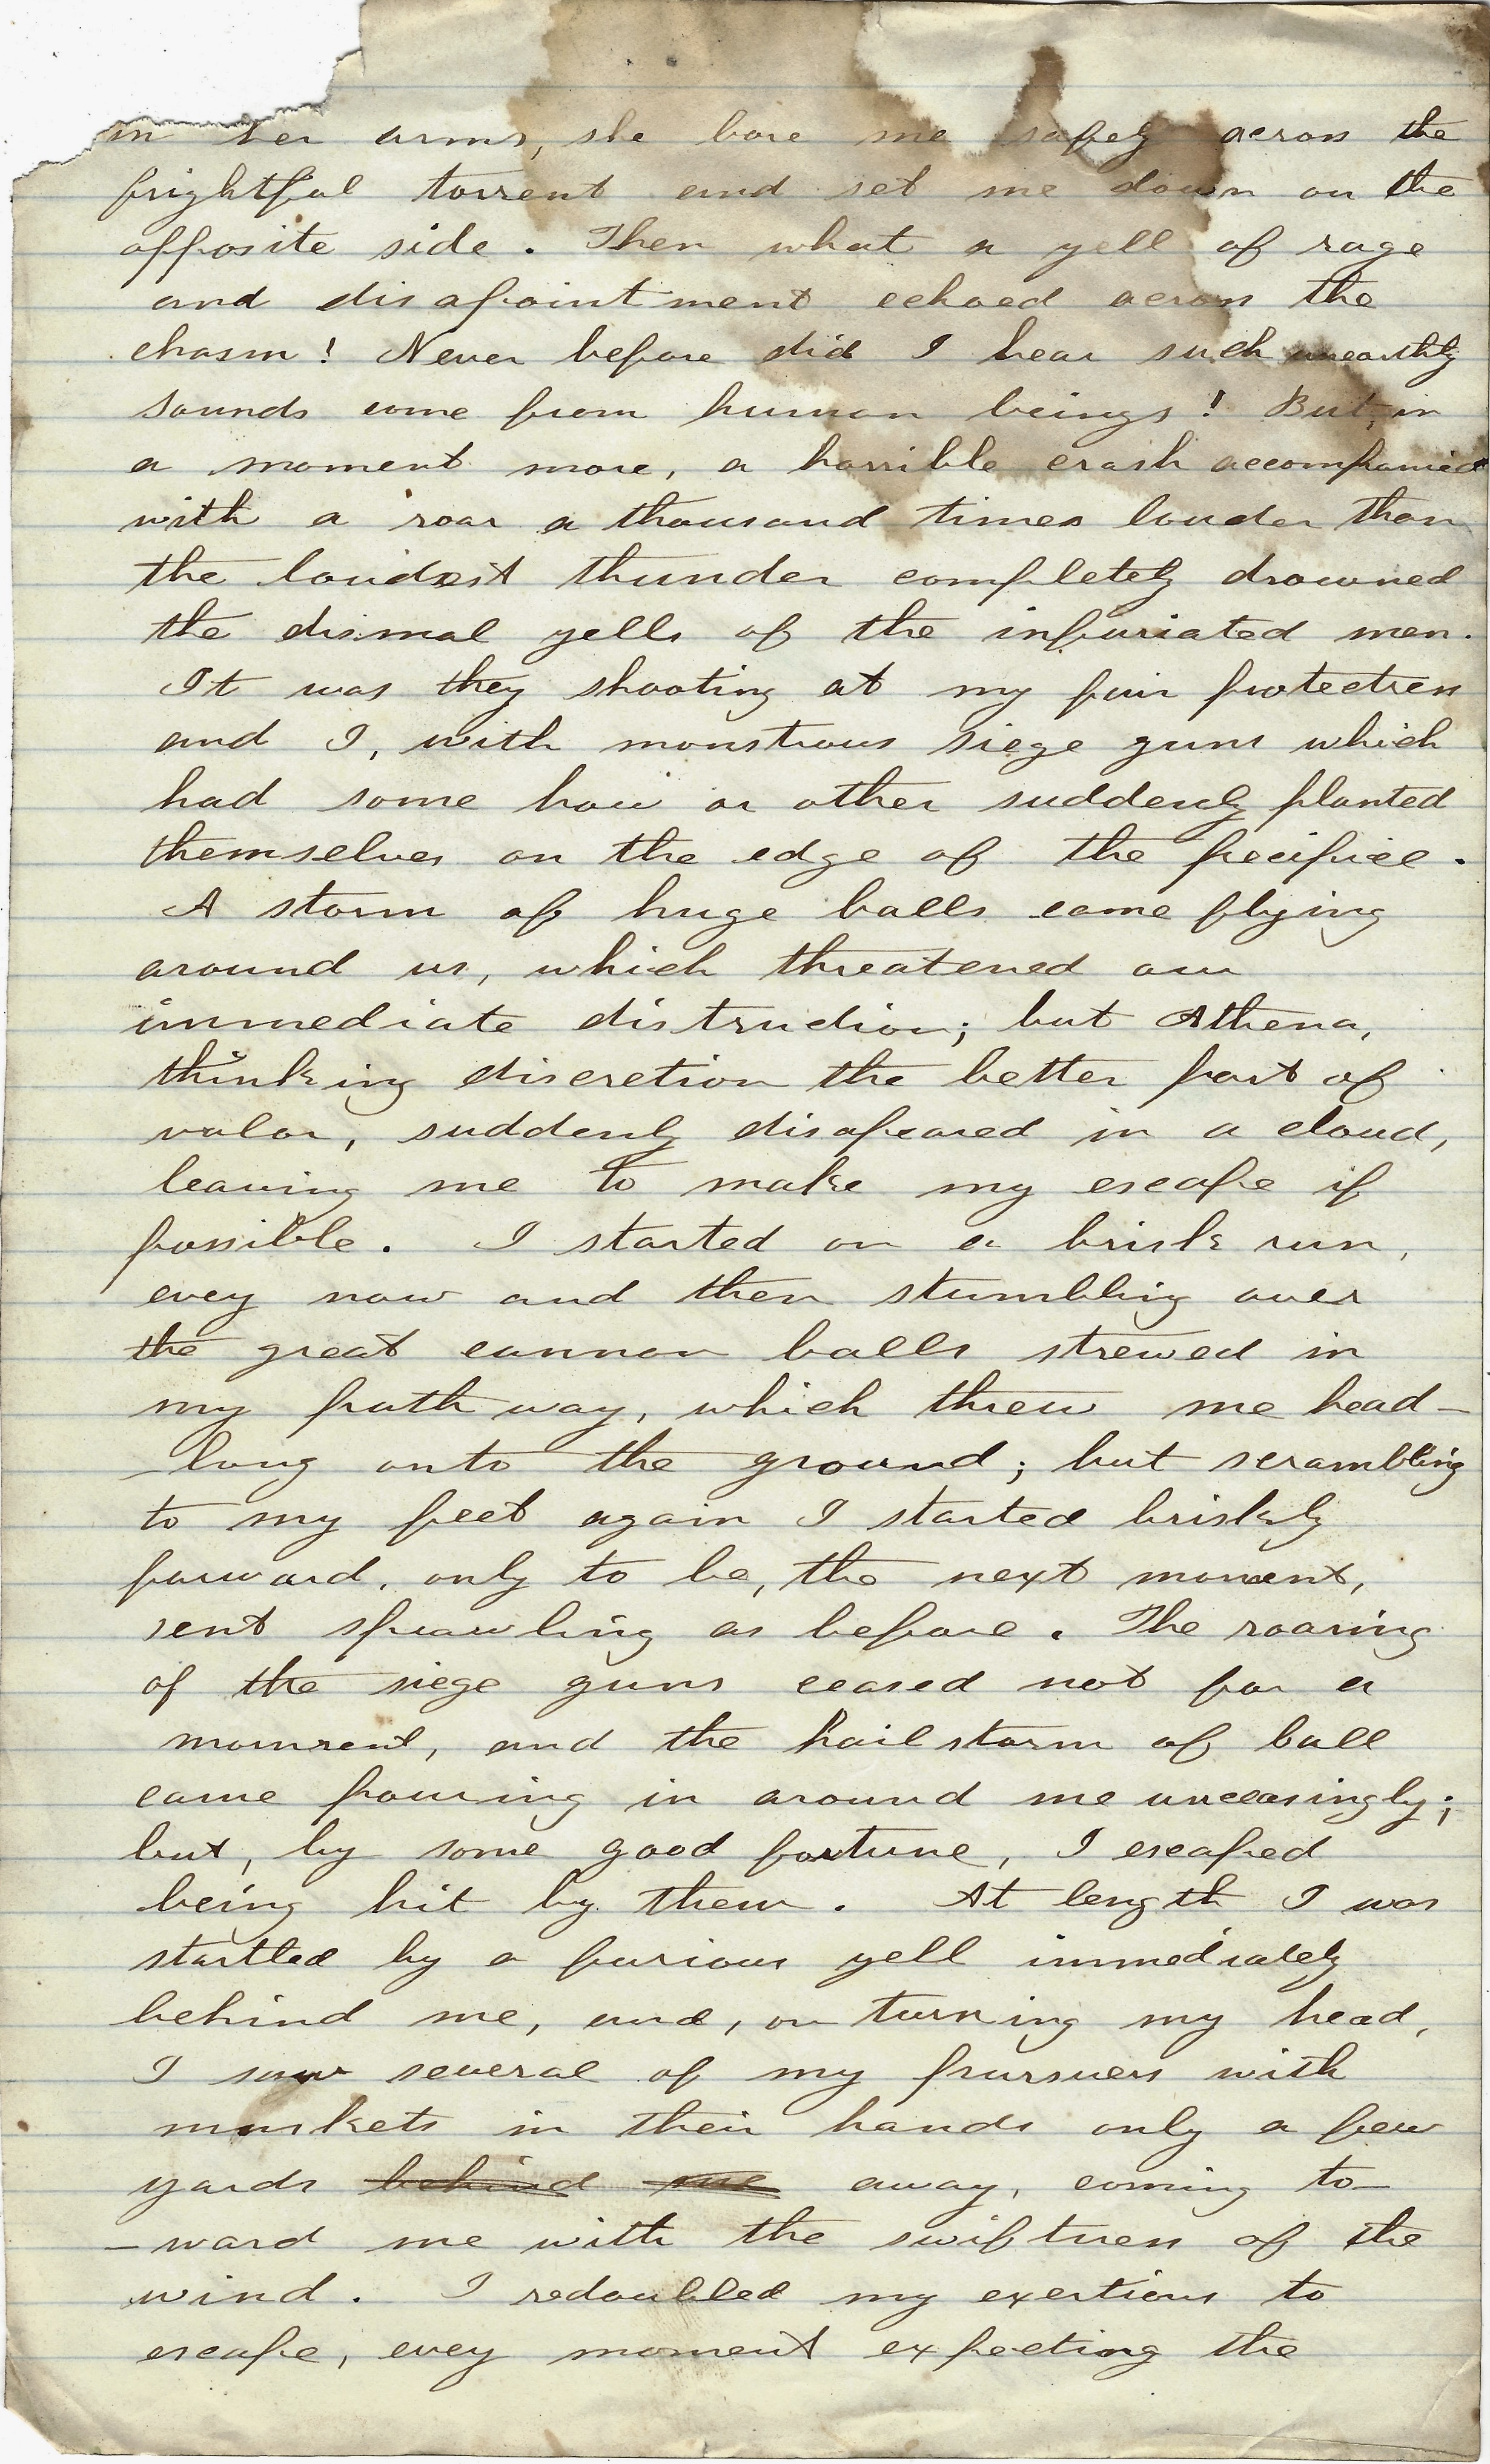 in her arms, she bore me safely across the
frightful torrent and set me down on the
opposite side. Then what a yell of rage
and disapointment echoed across the
chasm! Never before did I hear such unearthly
sounds come from human beings! But, in
a moment more, a horrible crash accompanied
with a roar a thousand times louder than
the loudest thunder completely drowned
the dismal yells of the infuriated men.
It was they shooting at my fair protectress
and I, with monstrous siege guns which
had some how or other suddenly planted
themselves on the edge of the precipice.
A storm of huge balls came flying
around us, which threatened our
immediate distruction; but Athena,
thinking discretion the better part of
valor, suddenly disapeared in a cloud,
leaving me to make my escape if
possible. I started on a brisk run,
evey now and then stumbling over
the great cannon balls strewed in
my path way, which threw me head-
-long onto the ground; but scrambling
to my feet again I started briskly
forward, only to be, the next moment,
sent sprawling as before. The roaring
of the siege guns ceased not for a
moment, and the hail storm of ball
came pouring in around me unceasingly;
but, by some good fortune, I escaped
being hit by them. At length I was
startled by a furious yell immediately
behind me, and, on turning my head,
I saw several of my pursuers with
muskets in their hands only a few
yards behind me away, coming to-
-ward me with the swiftness of the
wind. I redoubled my exertions to
escape, evey moment expecting the